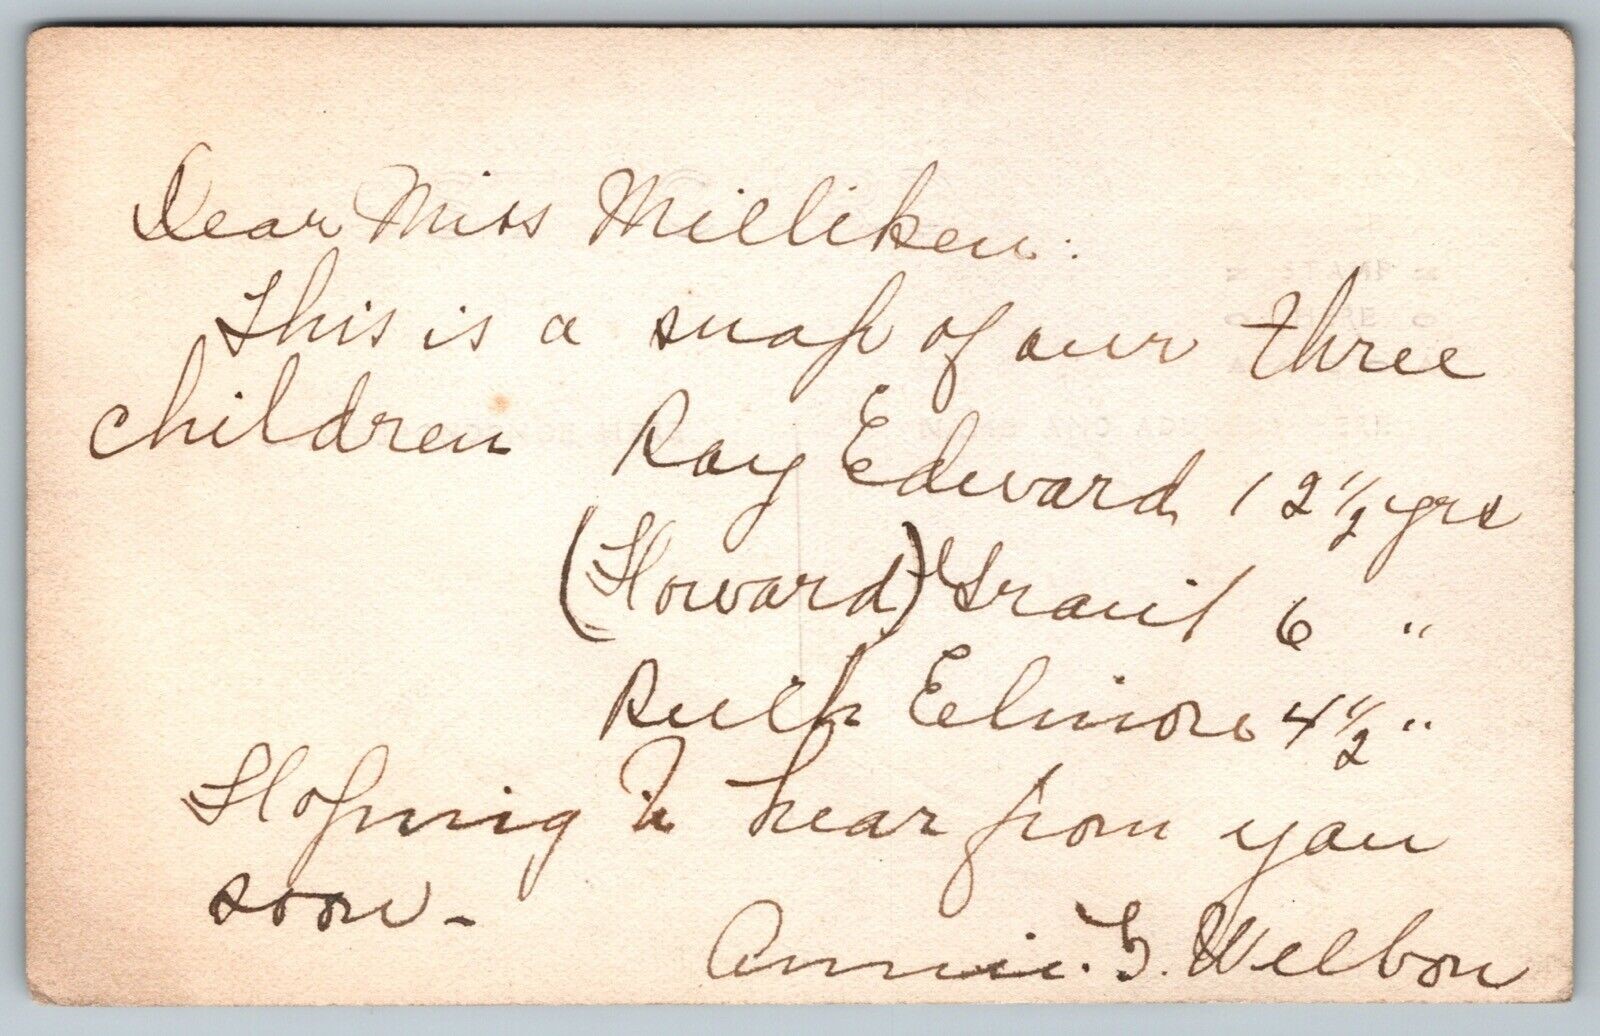 Dear Miss Milliken:
This is a snap of our three
children Ray Edward 12 1/2 yrs
(Howard) 6 "
Ruth Elinore 4 1/2 "
Hoping to hear from you
soon -
Annie. G. Welbon